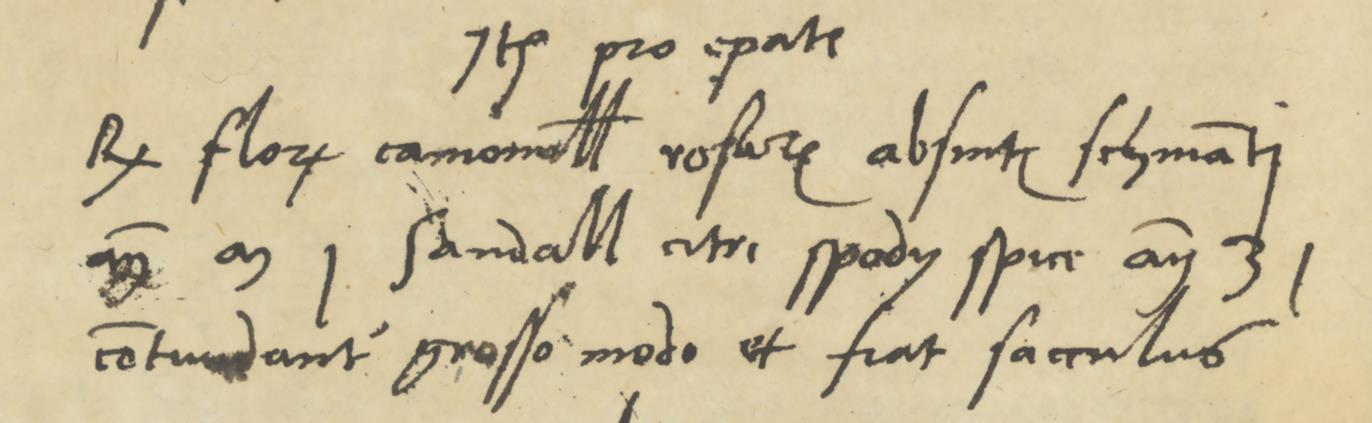 Jtē pro epate
Rx florꝝ camomill rosarꝝ absintꝫ schinātj
añ m j sandall citri spodij spice añ ʒ j
cōtundant᾿ grosso modo et fiat sacculus